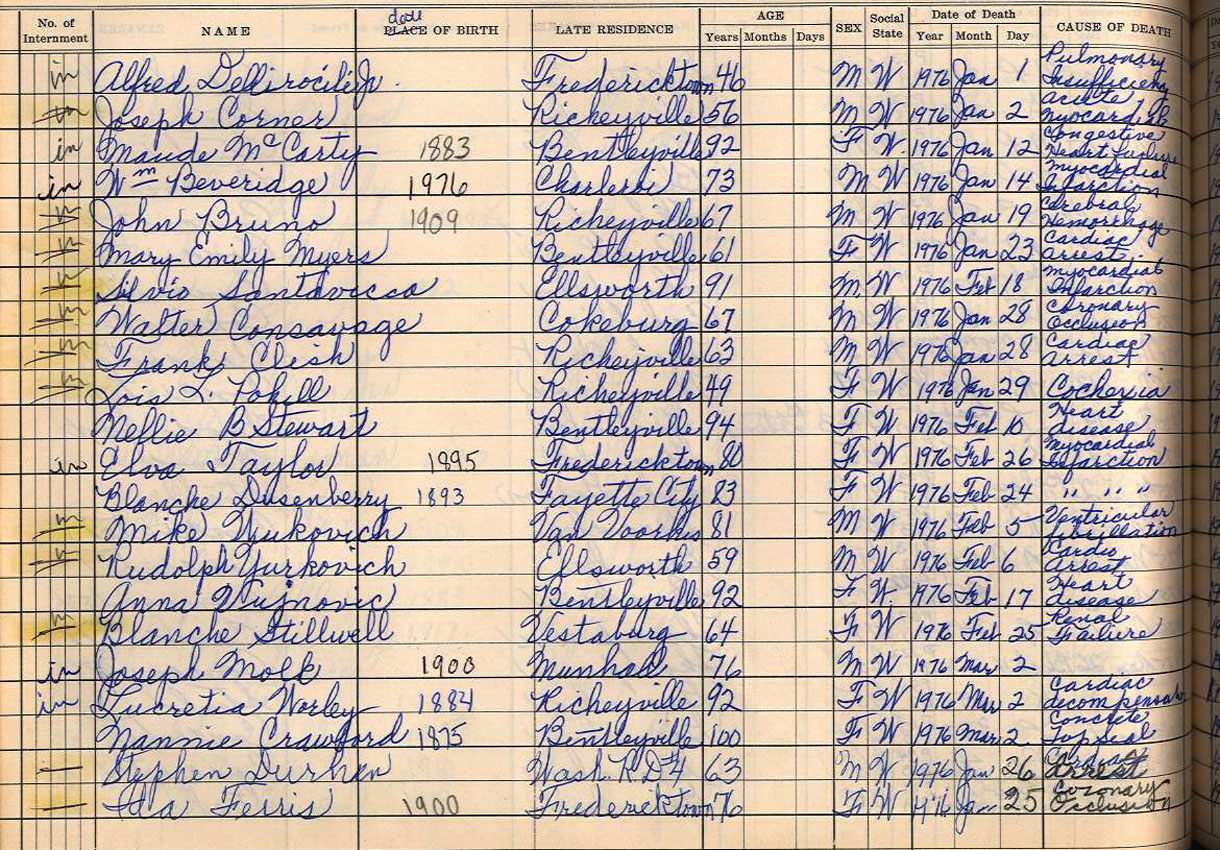 No. of Internment NAME date PLACE OF BIRTH LATE RESIDENCE AGE Years Months Days SEX Social State Date of Death Year Month Day CAUSE OF DEATH
in Alfred Jr. Fredericktown 46 M W 1976 Jan 1 Pulmonary Insufficiency
in Joseph Corner Richeyville 56 M W 1976 Jan 2 acute myocardial
in Maude McCarty 1883 Bentleyville 92 F W. 1976 Jan 12 Congestive Heart Failure
in Wm Beveridge 1976 Charleroi 73 M W 1976 Jan 14 myocardial Infarction
in John Bruno 1909 Richeyville 67 M W 1976 Jan 19 Cerebral Hemorrhage
in Mary Emily Myers Bentleyville 61 F W 1976 Jan 23 Cardiac arrest
in Silvio Santavicca Ellsworth 91 M W 1976 Feb 18 myocardial Infarction
in Walter Consavage Cokeburg 67 M W 1976 Jan 28 Coronary Occlusion
in Frank Clish Richeyville 63 M W 1976 Jan 28 Cardiac Arrest
in Lois L. Richeyville 49 F W 1976 Jan 29
Nellie B Stewart Bentleyville 94 F W 1976 Feb 10 Heart disease
in Elva Taylor 1895 Fredericktown 80 F W 1976 Feb 26 Myocardial Infarction
Blanche Dusenberry 1893 Fayette City 83 F W 1976 Feb 24 " " "
in Mike Yukovich Van Voorhis 81 M W 1976 Feb 5 Ventricular fibrillation
in Rudolph Yurkovich Ellsworth 59 M W 1976 Feb 6 Cardio Arrest
Anna Vujnovic Bentleyville 92 F W 1976 Feb 17 Heart disease
in Blanche Stillwell Vestaburg 64 F W 1976 Feb 25 Renal Failure
in Joseph Molk 1900 Munhall 76 M W 1976 Mar 2
in Lucretia Worley 1884 Richeyville 92 F W 1976 Mar 2 Cardiac decompensation
Nannie Crawford 1875 Bentleyville 100 F W 1976 Mar 2 Concrete Top Seal
Stephen Durhan Wash. R.D#4 63 M W 1976 Jan 26 Cardiac Arrest
Ida Ferris 1900 Fredericktown 76 F W Jan 25 Coronary Occlusion